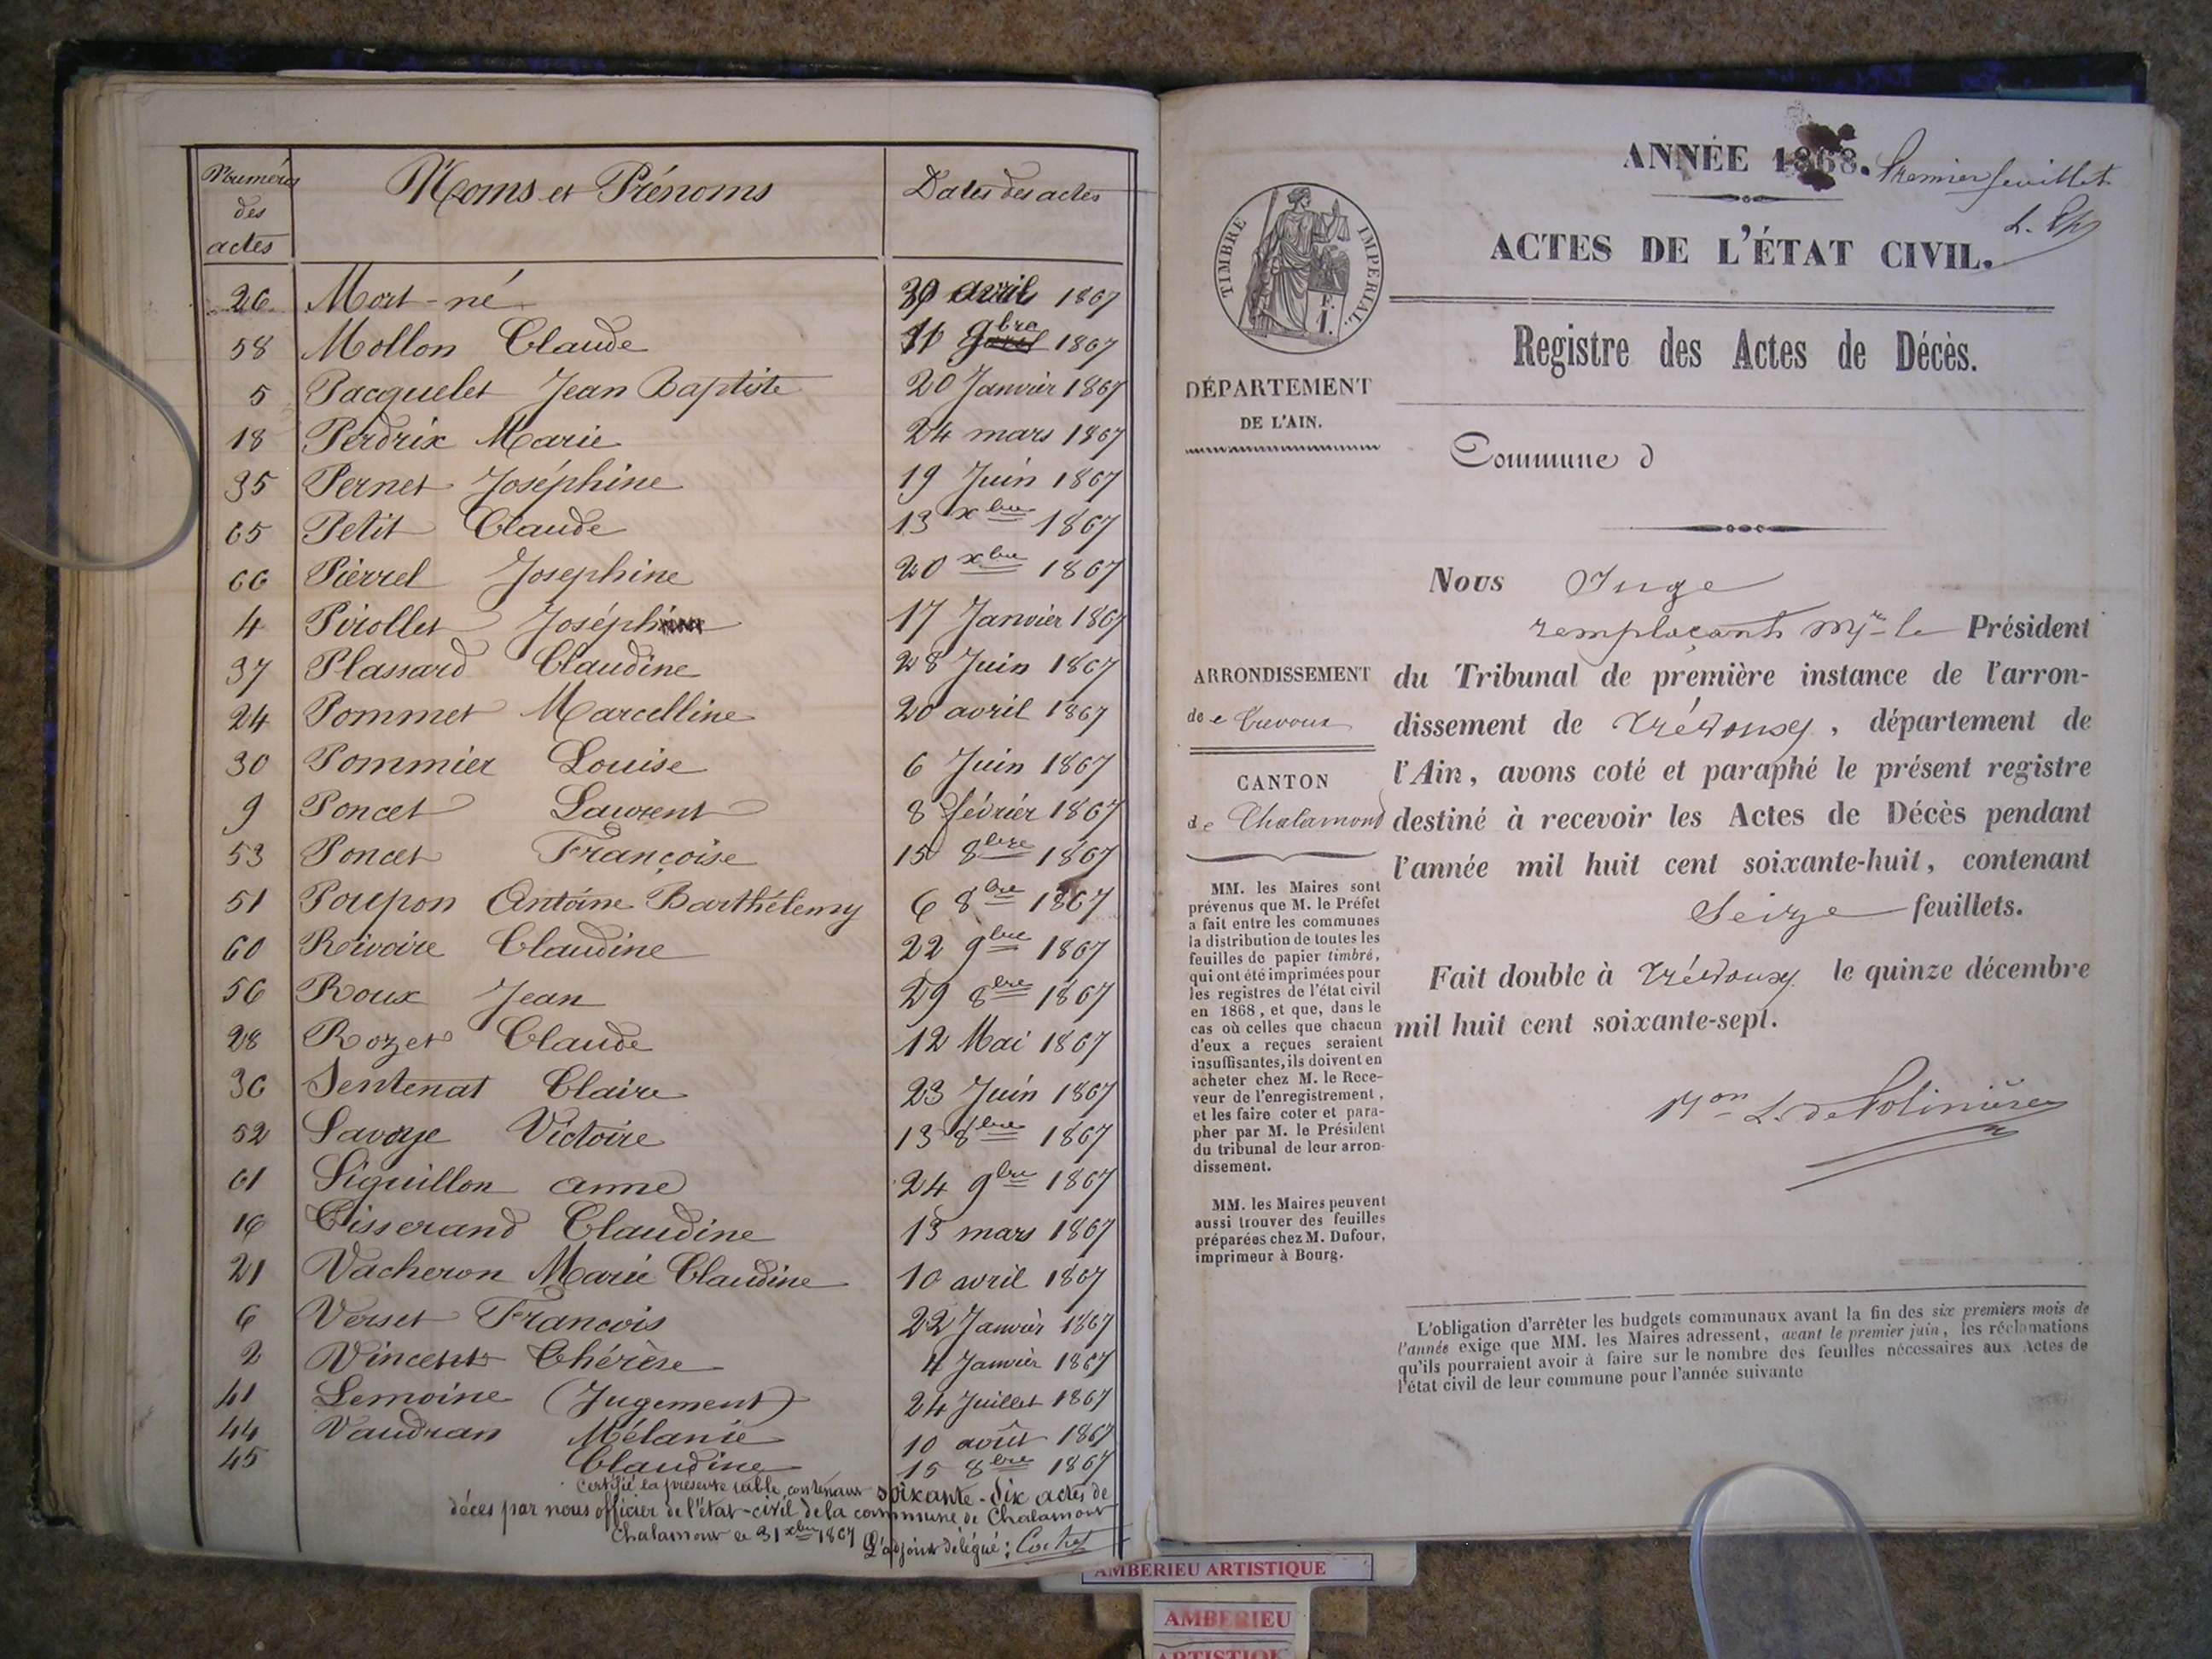 Numéros des actes Noms et Prénoms Dates des actes
26 Mort-né 30 avril 1867
58 Mollon Claude 11 9bre 1867
5 Pacquelet Jean Baptiste 20 Janvier 1867
18 Perdrix Marie 24 mars 1867
35 Pernet Joséphine 19 Juin 1867
65 Petit Claude 13 xbre 1867
66 Pierrel Josephine 20 xbre 1867
4 Pirollet Joséph 17 Janvier 1867
37 Plassard Claudine 28 Juin 1867
24 Pommet Marcelline 20 avril 1867
30 Pommier Louise 6 Juin 1867
9 Poncet Laurent 8 février 1867
53 Poncet Françoise 15 8bre 1867
51 Poupon Antoine Barthélemy 6 8bre 1867
60 Roivoire Claudine 22 9bre 1867
56 Roux Jean 29 8bre 1867
28 Rozet Claude 12 Mai 1867
36 Sentenat Claire 23 Juin 1867
52 Savoye Victoire 13 8bre 1867
61 Siguillon anne 24 9bre 1867
16 Tisserand Claudine 13 mars 1867
21 Vacheron Marie Claudine 10 avril 1867
6 Verset Francois 22 Janvier 1867
2 Vincent Thérèse 4 Janvier 1867
41 Lemoine (Jugement) 24 Juillet 1867
44 Vaudran Mélanie 10 août 1867
45 Claudine 15 8bre 1867
Certifié la présente table, contenant soixante-six actes de
décès par nous officier de l'état-civil de la commune de Chalamont
Chalamont le 31 xbre 1867 L'adjoint délégué:
ANNÉE 1868. Premier feuillet
ACTES DE L'ÉTAT CIVIL.
TIMBRE IMPERIAL.
Registre des Actes de Décès.
DÉPARTEMENT
DE L'AIN.
Commune d
Nous Juge
remplaçant Mr le Président
ARRONDISSEMENT
de Trevoux
CANTON
de Chalamont
du Tribunal de première instance de l'arron-
dissement de Trévoux, département de
l'Ain, avons coté et paraphé le présent registre
destiné à recevoir les Actes de Décès pendant
l'année mil huit cent soixante-huit, contenant
Seize feuillets.
Fait double à Trévoux le quinze décembre
mil huit cent soixante-sept.
MM. les Maires sont
prévenus que M. le Préfet
a fait entre les communes
la distribution de toutes les
feuilles de papier timbré,
qui ont été imprimées pour
les registres de l'état civil
en 1868, et que, dans le
cas où celles que chacun
d'eux a reçues seraient
insuffisantes, ils doivent en
acheter chez M. le Rece-
veur de l'enregistrement,
et les faire coter et para-
pher par M. le Président
du tribunal de leur arron-
dissement.
MM. les Maires peuvent
aussi trouver des feuilles
préparées chez M. Dufour,
imprimeur à Bourg.
L'obligation d'arrêter les budgets communaux avant la fin des six premiers mois de
l'année exige que MM. les Maires adressent, avant le premier juin, les réclamations
qu'ils pourraient avoir à faire sur le nombre des feuilles nécessaires aux Actes de
l'état civil de leur commune pour l'année suivante
AMBERIEU ARTISTIQUE
AMBERIEU
ARTISTIQUE